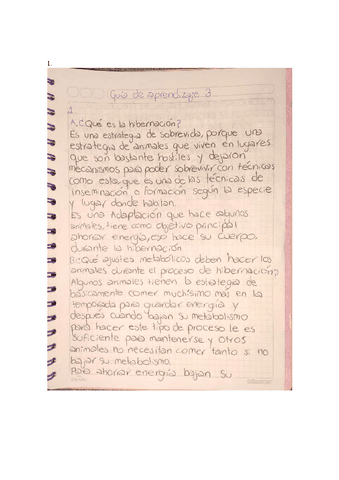 1.
Guía de aprendizaje 3
1
A. ¿Qué es la hibernación?
Es una estrategia de sobrevida, porque una
estrategia de animales que viven en lugares
que son bastante hostiles y dejaron
mecanismos para poder sobrevivir con técnicas
como esta, que es una de las técnicas de
inseminación o formación según la especie
y lugar donde habitan.
Es una Adaptación que hace algunos
animales, tiene como objetivo principal
ahorrar energía, eso hace su cuerpo
durante la hibernación
B. ¿Qué ajustes metabólicos deben hacer los
animales durante el proceso de hibernación?
Algunos animales tienen la estrategia de
básicamente comer muchísimo más en la
temporada para guardar energía y
después cuando bajan su metabolismo
para hacer este tipo de proceso le es
suficiente para mantenerse y otros
animales no necesitan comer tanto si no
bajar su metabolismo.
Para ahorrar energía bajan su